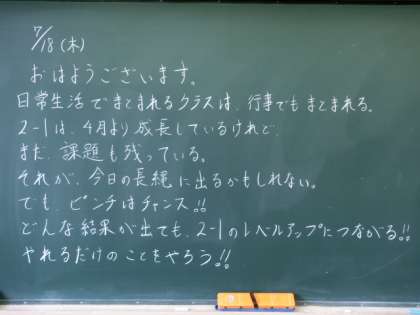 7/18(木)
おはようございます。
日常生活でまとまれるクラスは、行事でもまとまれる。
2-1は、4月より成長しているけれど、
まだ、課題も残っている。
それが、今日の長縄に出るかもしれない。
でも、ピンチはチャンス!!
どんな結果が出ても、2-1のレベルアップにつながる!!
やれるだけのことをやろう!!